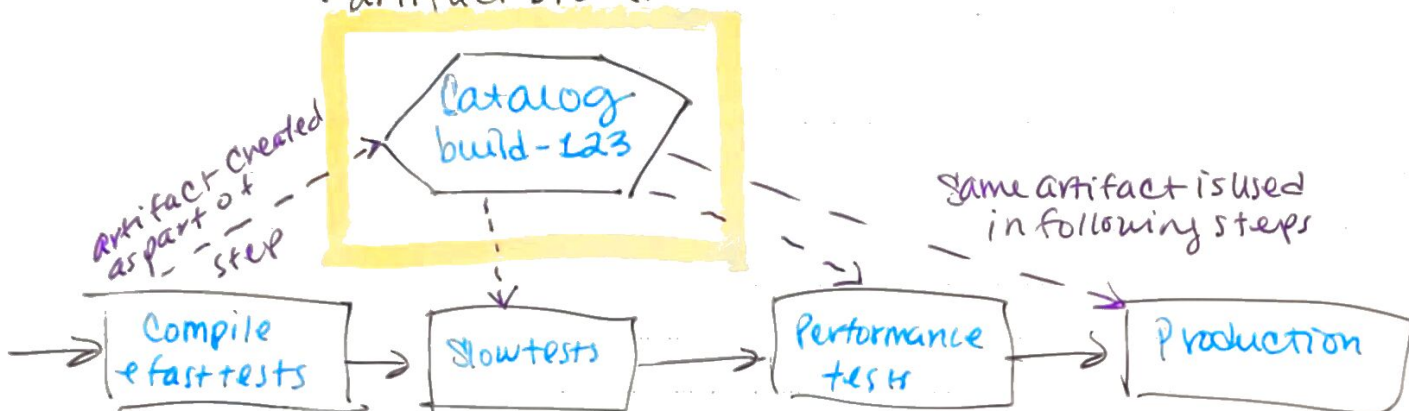 Catalog
build-123
artifact created
as part of
step
Same artifact is used
in following steps
Compile
& fast tests
Slow tests
Performance
tests
Production